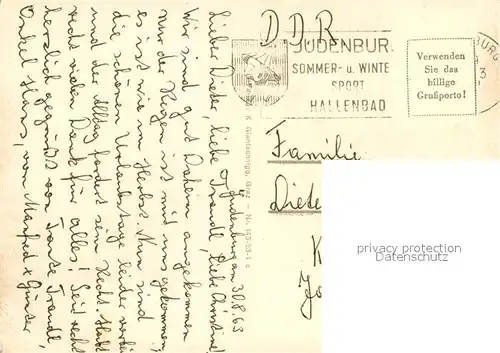 Judenburg am 30.8.63
Lieber Dieter, liebe Traudl, liebe Christine!
Wir sind gut Daheim angekommen
nur der Regen ist mit uns gekommen,
es ist wie im Herbst. Nun sind
die schönen Urlaubstage leider vorbei
und der Alltag fordert sein Recht. Habt
recht vielen Dank für alles! Seid recht
herzlich gegrüßt von Tante Traudl,
Onkel Hans, von Manfred + Günter
DDR
JUDENBUR.
SOMMER- u. WINTE
SPORT
HALLENBAD
Verwenden
Sie das
billige
Grußporto!
Familie
Diete
K
privacy protection
Datenschutz